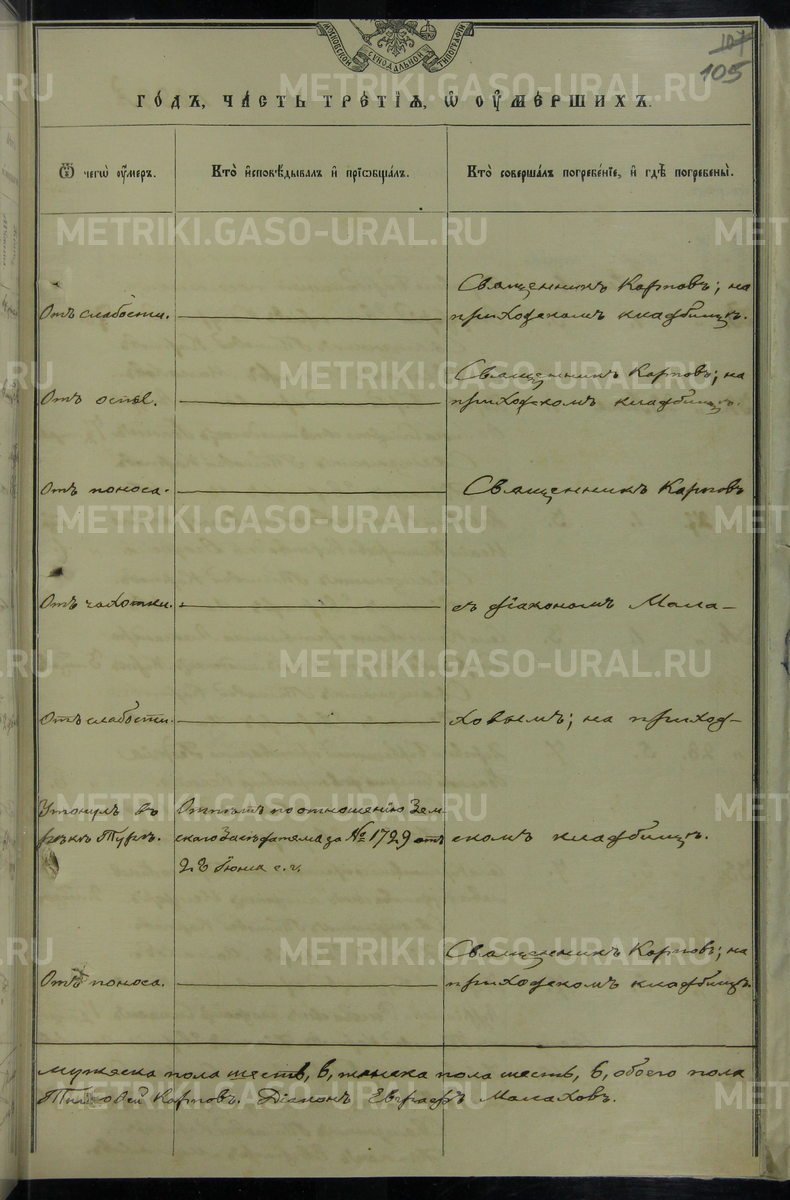 МОСКОВСКОЙ СУНОДАЛЬНОЙ ТИПОГРАФІИ
107
105
ГОДЪ, ЧАСТЬ ТРЕТІѦ, Ѿ ОУМЕРШИХЪ.
Ѿ чегѡ оумеръ.
Кто исповѣдывалъ и прїѡбщалъ.
Кто совершалъ погребеніе, и гдѣ погребены.
Отъ слабости.
Священникъ Карповъ; на
приходскомъ кладбищѣ.
Отъ оспы.
Священникъ Карповъ; на
приходскомъ кладбищѣ.
Отъ поноса.
Священникъ Карповъ
Отъ чахотки.
съ діакономъ Мала-
Отъ слабости.
ховымъ; на приход-
Утонулъ въ
рѣкѣ Турѣ.
Отпѣтъ по отношенію Зем-
скаго Засѣдателя за № 1729 отъ
23 Іюня с. г.
скомъ кладбищѣ.
Отъ поноса.
Священникъ Карповъ; на
приходскомъ кладбищѣ.
мужеска пола шесть, 6, женска пола шесть, 6, обоего пола
Карповъ. Діаконъ Евграфъ Малаховъ.
METRIKI.GASO-URAL.RU